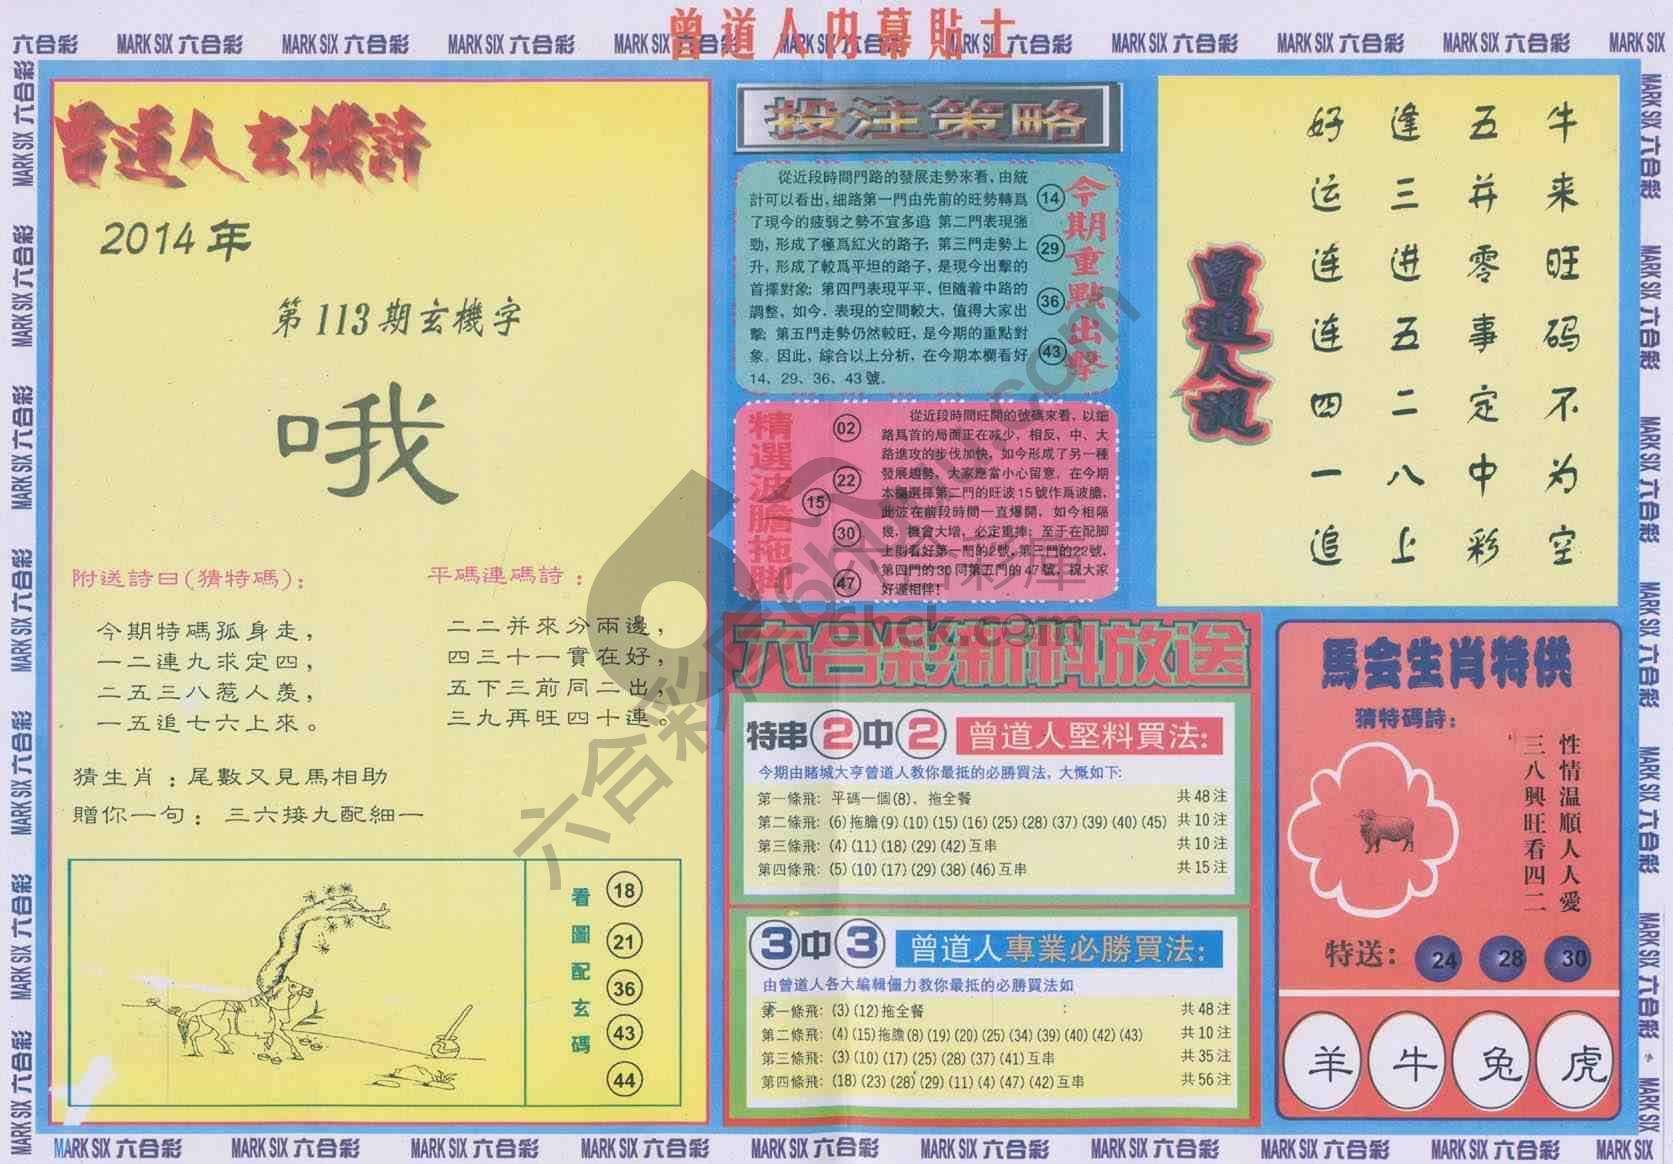 曾道人内幕貼士
六合彩 MARK SIX 六合彩 MARK SIX 六合彩 MARK SIX 六合彩 MARK SIX 六合彩 MARK SIX 六合彩 MARK SIX 六合彩 MARK SIX 六合彩 MARK SIX 六合彩 MARK SIX 六合彩 MARK SIX
曾道人玄機詩
2014年
第113期玄機字
哦
附送詩曰(猜特碼)：
今期特碼孤身走，
一二連九求定四，
二五三八惹人羨，
一五追七六上來。
平碼連碼詩：
二二并來分兩邊，
四三十一實在好，
五下三前同二出，
三九再旺四十連。
猜生肖：尾數又見馬相助
贈你一句：三六接九配細一
看圖配玄碼
18
21
36
43
44
投注策略
今期重點出擊
14
29
36
43
從近段時間門路的發展走勢來看、由統
計可以看出，細路第一門由先前的旺勢轉爲
了現今的疲弱之勢不宜多追 第二門表現強
勁，形成了極爲紅火的路子；第三門走勢上
升，形成了較爲平坦的路子，是現今出擊的
首擇對象；第四門表現平平，但隨着中路的
調整、如今、表現的空間較大、值得大家出
擊；第五門走勢仍然較旺，是今期的重點對
象。因此，綜合以上分析，在今期本欄看好
14、29、36、43號。
精選波膽拖脚
02
22
15
30
47
從近段時間旺開的號碼來看、以細
路爲首的局面正在减少，相反、中、大
路進攻的步伐加快，如今形成了另一種
發展趨勢，大家應當小心留意，在今期
本欄選擇第二門的旺波15號作爲波膽，
此波在前段時間一直爆開，如今相隔
幾，機會大增，必定重捧；至于在配脚
上則看好第一門的2號、第三門的22號、
第四門的30同第五門的47號，祝大家
好運相伴！
曾道人訊
牛来旺码不为空
五并零事定中彩
逢三进五二八上
好运连连四一追
六合彩新料放送
特串2中2 曾道人堅料買法：
今期由賭城大亨曾道人教你最抵的必勝買法，大慨如下：
第一條飛：平碼一個(8)、拖全餐 共48注
第二條飛：(6)拖膽(9)(10)(15)(16)(25)(28)(37)(39)(40)(45) 共10注
第三條飛：(4)(11)(18)(29)(42)互串 共10注
第四條飛：(5)(10)(17)(29)(38)(46)互串 共15注
3中3 曾道人專業必勝買法：
由曾道人各大編輯儷力教你最抵的必勝買法如
第一條飛：(3)(12)拖全餐 共48注
第二條飛：(4)(15)拖膽(8)(19)(20)(25)(34)(39)(40)(42)(43) 共10注
第三條飛：(3)(10)(17)(25)(28)(37)(41)互串 共35注
第四條飛：(18)(23)(28)(29)(11)(4)(47)(42)互串 共56注
馬会生肖特供
猜特碼詩：
性情温順人人愛
三八興旺看四二
特送：24 28 30
羊 牛 兔 虎
MARK SIX 六合彩 MARK SIX 六合彩 MARK SIX 六合彩 MARK SIX 六合彩 MARK SIX 六合彩 MARK SIX 六合彩 MARK SIX 六合彩 MARK SIX 六合彩 MARK SIX 六合彩 MARK SIX